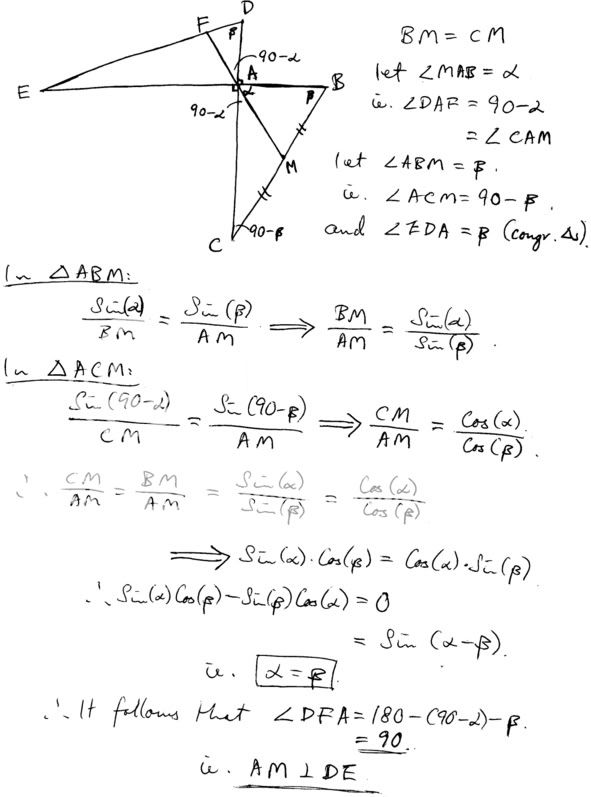 D
F
β
90-α
E
A
α
B
β
90-α
M
C
90-β
BM = CM
let ∠MAB = α
ie. ∠DAF = 90-α
= ∠CAM
let ∠ABM = β.
ie. ∠ACM = 90-β.
and ∠EDA = β (congr. Δs).
In ΔABM:
Sin(α)/BM = Sin(β)/AM ⟹ BM/AM = Sin(α)/Sin(β).
In ΔACM:
Sin(90-α)/CM = Sin(90-β)/AM ⟹ CM/AM = Cos(α)/Cos(β).
∴ CM/AM = BM/AM = Sin(α)/Sin(β) = Cos(α)/Cos(β)
⟹ Sin(α)·Cos(β) = Cos(α)·Sin(β)
∴ Sin(α)Cos(β)-Sin(β)Cos(α) = 0
= Sin (α-β).
ie. α = β
∴ It follows that ∠DFA = 180-(90-α)-β.
= 90
ie. AM ⊥ DE